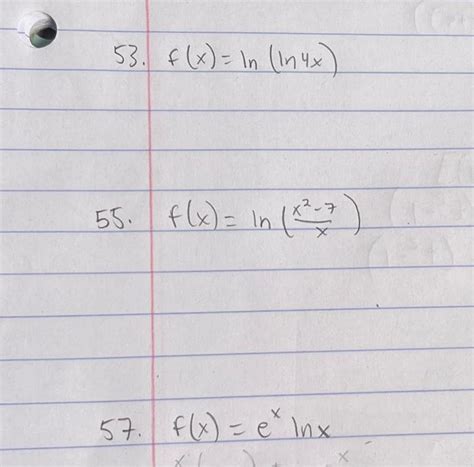 53. f(x) = ln (ln 4x)
55. f(x) = ln (x² - 7 / x)
57. f(x) = eˣ ln x